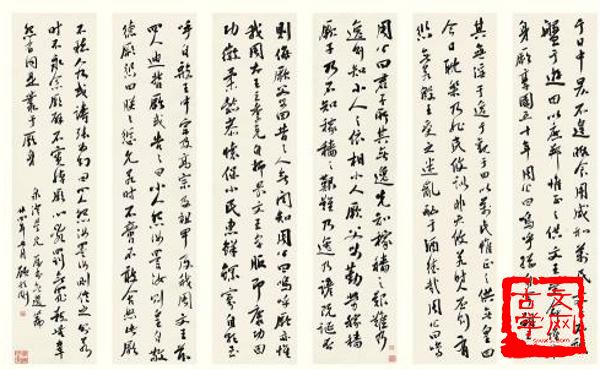 于日中昃不遑暇食用咸和萬民文王不敢
盤于遊田以庶邦惟正之供文王受命惟
身厥享國五十年周公曰嗚呼繼
其無淫于逸于觀于田以萬民惟正之供無皇曰
今日耽樂乃非民攸訓非天攸若時人丕則有
愆無若殷王受之迷亂酗于酒德哉周公曰嗚
周公曰君子所其無逸先知稼穡之艱難乃
逸則知小人之依相小人厥父母勤勞稼穡
厥子乃不知稼穡之艱難乃逸乃諺既誕否
則侮厥父母曰昔之人無聞知周公曰嗚呼厥亦惟
我周太王王季克自抑畏文王卑服即康功田
功徽柔懿恭懷保小民惠鮮鰥寡自朝至
呼自殷王中宗及高宗及祖甲及我周文王茲
四人迪哲厥或告之曰小人怨汝詈汝則皇自敬
德厥愆曰朕之愆允若時不啻不敢含怒此厥
不聽人乃或譸張為幻曰小人怨汝詈汝則信之則若
時不永念厥辟不寬綽厥心亂罰無罪殺無辜
怨有同是叢于厥身
吾兄屬書無逸篇
廿四年五月
古文